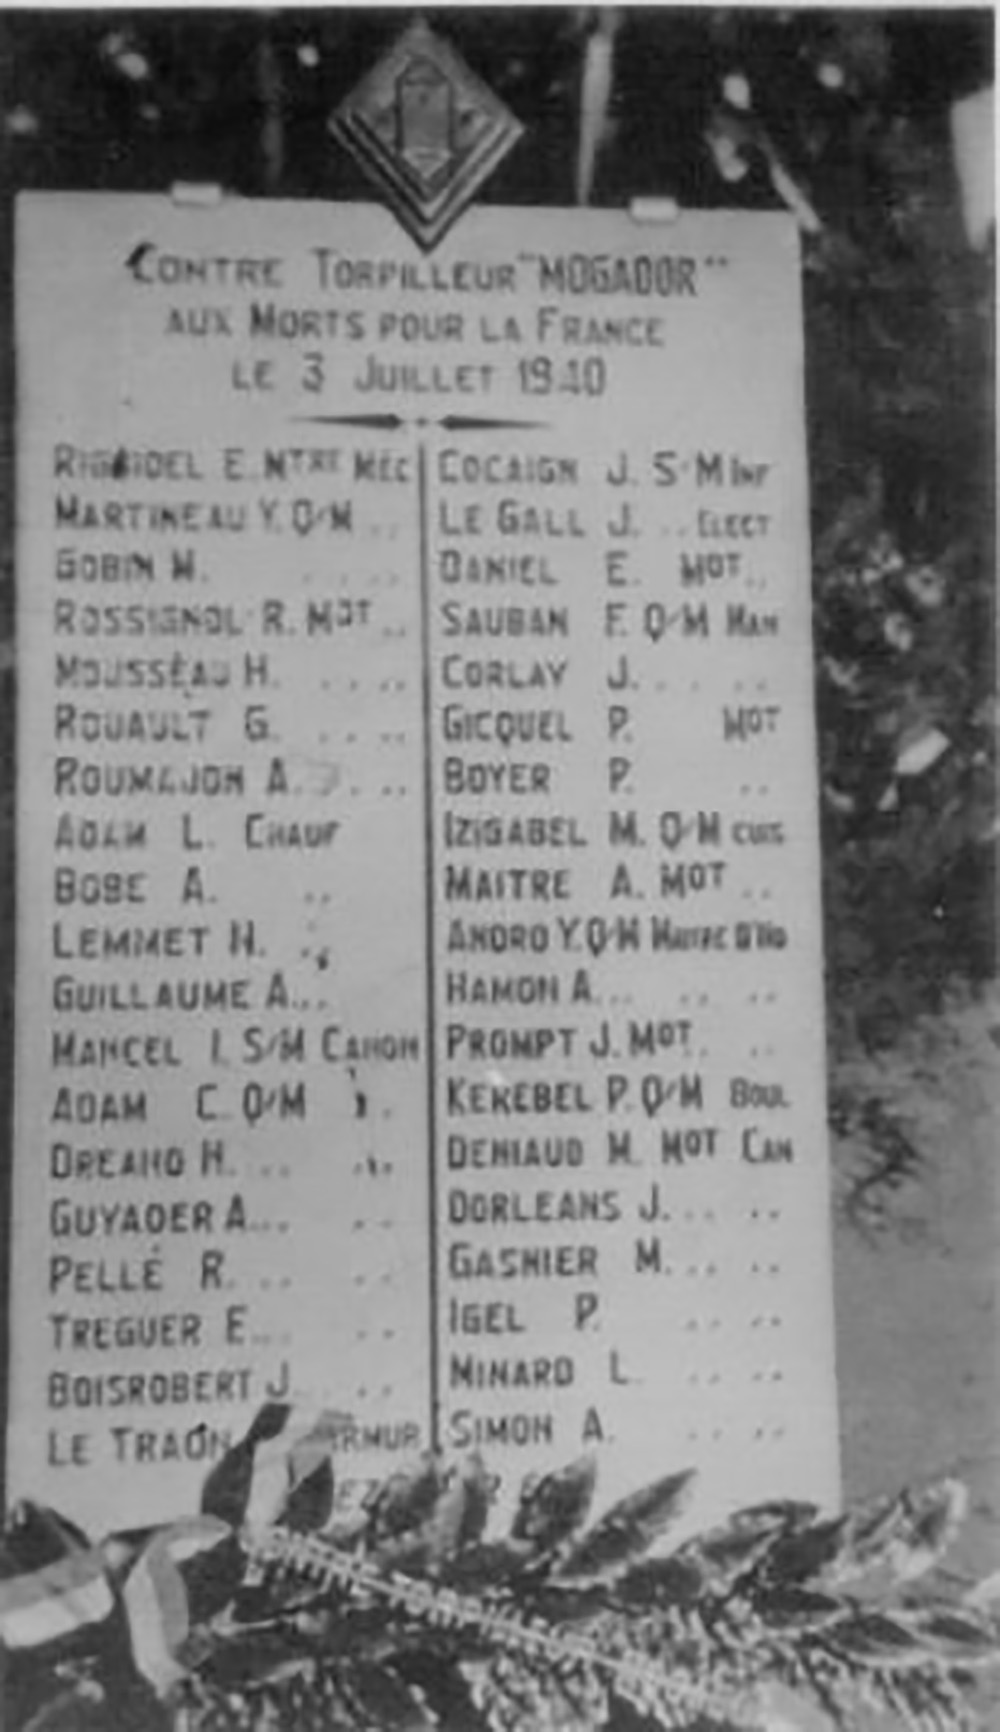 CONTRE TORPILLEUR "MOGADOR"
AUX MORTS POUR LA FRANCE
LE 3 JUILLET 1940
E. MTRE MEC
MARTINEAU Y. Q/M ..
GOBIN M. .. ..
ROSSIGNOL R. MOT ..
MOUSSEAU H. .. ..
ROUAULT G. .. ..
ROUMAJON A. .. ..
ADAM L. CHAUF
BOBE A. ..
LEMMET H. ..
GUILLAUME A. ..
MANCEL I. S/M CANON
ADAM C. Q/M ..
DREANO H. .. ..
GUYADER A. .. ..
PELLÉ R. .. ..
TREGUER E. .. ..
BOISROBERT J. .. ..
LE TRAON ARMUR
COCAIGN J. S/M INF
LE GALL J. .. ELECT
DANIEL E. MOT ..
SAUBAN F. Q/M MAN
CORLAY J. .. ..
GICQUEL P. MOT
BOYER P. ..
IZIGABEL M. Q/M CUIS
MAITRE A. MOT ..
ANDRO Y. Q/M MAITRE D'HO
HAMON A. .. .. ..
PROMPT J. MOT. ..
KEREBEL P. Q/M BOUL
DENIAUD M. MOT CAN
DORLEANS J. .. ..
GASNIER M. .. ..
IGEL P. .. ..
MINARD L. .. ..
SIMON A. .. ..
CONTRE-TORPILLEUR